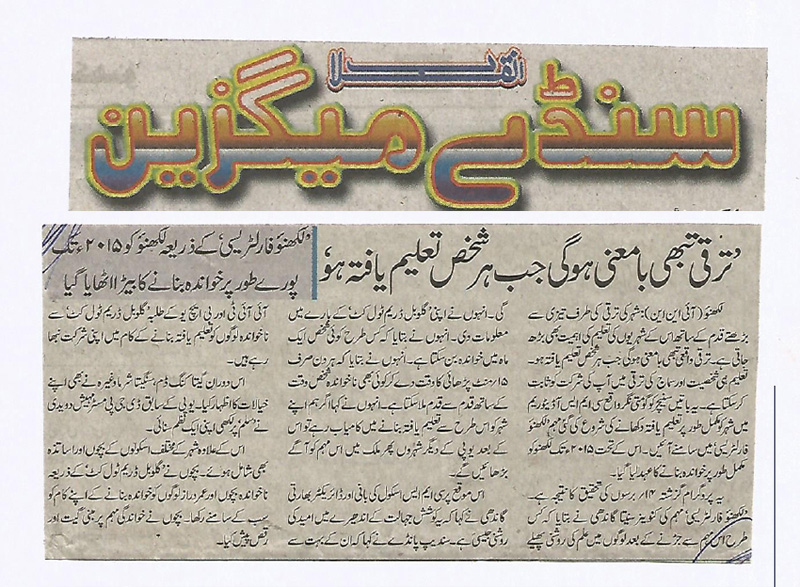 انقلاب
سنڈے میگزین
’ترقی تبھی بامعنی ہوگی جب ہر شخص تعلیم یافتہ ہو‘
’لکھنؤ فار لٹریسی‘ کے ذریعہ لکھنؤ کو ۲۰۱۵ء تک
پورے طور پر خواندہ بنانے کا بیڑا اٹھایا گیا
لکھنؤ (آئی این این): بشر کی ترقی کی طرف تیزی سے
بڑھتے قدم کے ساتھ اس کے شہریوں کی تعلیم کی اہمیت بھی بڑھ
جاتی ہے۔ ترقی واقعی بھی بامعنی ہوگی جب ہر شخص تعلیم یافتہ ہو۔
تعلیم ہی شخصیت اور سماج کی ترقی میں آپ کی شرکت کو ثابت
کرسکتا ہے۔ یہ باتیں سنیچر کو گومتی نگر واقع سی ایم ایس آڈیٹوریم
میں شہر کو مکمل طور پر تعلیم یافتہ دکھانے کی شروع کی گئی مہم
فار لٹریسی میں سامنے آئیں۔ اس کے تحت ۲۰۱۵ء تک لکھنؤ کو
مکمل طور پر خواندہ بنانے کا عہد لیا گیا۔
یہ پروگرام گزشتہ ۱۴؍ برسوں کی تحقیق کا نتیجہ ہے۔
’لکھنؤ فار لٹریسی‘ مہم کی کنوینر سنیتا گاندھی نے بتایا کہ کس
طرح اس مہم سے جڑنے کے بعد لوگوں میں علم کی روشنی پھیلے
گی۔ انہوں نے اپنی ’گلوبل ڈریم ٹول کٹ‘ کے بارے میں
معلومات دی۔ انہوں نے بتایا کہ کس طرح کوئی شخص ایک
ماہ میں خواندہ بن سکتا ہے۔ انہوں نے بتایا کہ ہر دن صرف
۱۵؍ منٹ پڑھائی کا وقت دے کر کوئی بھی ناخواندہ شخص وقت
کے ساتھ قدم سے قدم ملا سکتا ہے۔ انہوں نے کہا اگر ہم اپنے
شہر کو اس طرح سے تعلیم یافتہ بنانے میں کامیاب رہے تو اس
کے بعد یوپی کے دیگر شہروں پھر ملک میں اس مہم کو آگے
بڑھائیں گے۔
اس موقع پر سی ایم ایس اسکول کی بانی اور ڈائریکٹر بھارتی
گاندھی نے کہا کہ یہ کوشش جہالت کے اندھیرے میں امید کی
روشنی جیسی ہے۔ سندیپ پانڈے نے کہا کہ ان کے بہت سے
آئی آئی ٹی اور بی ایچ یو کے طلبہ ’گلوبل ڈریم ٹول کٹ‘ سے
ناخواندہ لوگوں کو تعلیم یافتہ بنانے کے کام میں اپنی شرکت نبھا
رہے ہیں۔
اس دوران گیتا کنگ ڈم، سنگیتا شرما وغیرہ نے بھی اپنے
خیالات کا اظہار کیا۔ یوپی کے سابق ڈی جی پی مسٹر مہیش دویدی
نے مسلم پر لکھی اپنی ایک نظم سنائی۔
اس کے علاوہ شہر کے مختلف اسکولوں کے بچوں اور اساتذہ
بھی شامل ہوئے۔ بچوں نے ’گلوبل ڈریم ٹول کٹ‘ کے ذریعہ
ناخواندہ بچوں اور عمر دراز لوگوں کو خواندہ بنانے کے اپنے کام کو
سب کے سامنے رکھا۔ بچوں نے خواندگی مہم پر مبنی گیت اور
رقص پیش کیا۔